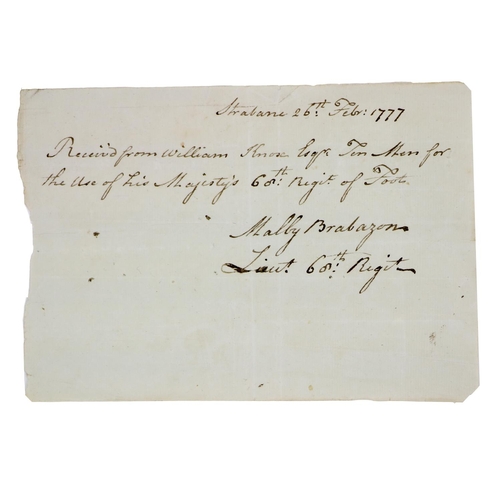 Strabane 26th Febr: 1777
Receiv'd from William Knox Esqr. Ten Men for
the Use of his Majesty's 68th Regit. of Foot.
Mally Brabazon
Lieut. 68th Regit.